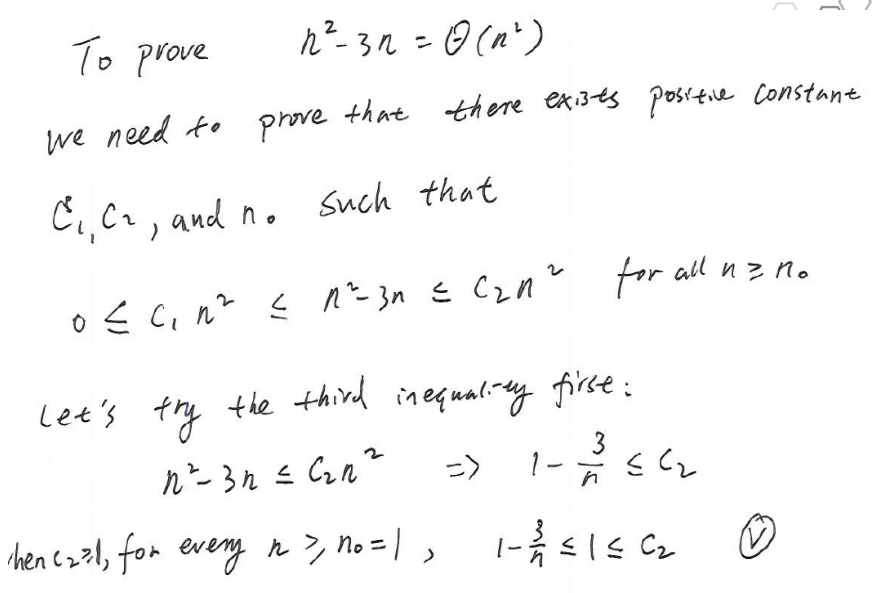 To prove n² - 3n = Θ(n²)
we need to prove that there exists positive constant
C₁, C₂, and n₀ such that
0 ≤ C₁ n² ≤ n² - 3n ≤ C₂n² for all n ≥ n₀
Let's try the third inequality first:
n² - 3n ≤ C₂n² => 1 - 3/n ≤ C₂
hen C₂≥1, for every n ≥ n₀ = 1, 1 - 3/n ≤ 1 ≤ C₂ ✓